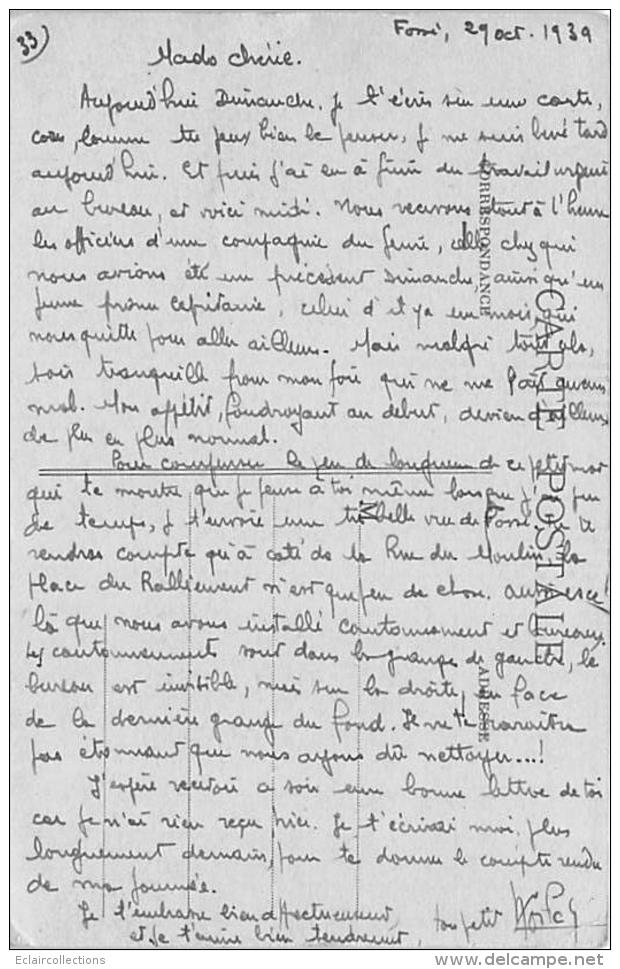 33)
Fossé, 29 oct. 1939
Mado chérie.
Aujourd'hui Dimanche. Je t'écris sur une carte,
car, comme tu peux bien le penser, je me suis levé tard
aujourd'hui. Et puis j'ai eu à finir du travail urgent
au bureau, et voici midi. Nous recevons tout à l'heure
les officiers d'une compagnie du Génie, celle chez qui
nous avions été un précédent Dimanche, ainsi qu'un
jeune capitaine, celui d'il y a un mois, qui
nous quitte pour aller ailleurs. Mais malgré tout cela,
sois tranquille pour mon foie qui ne me fait aucun
mal. Mon appétit, foudroyant au début, devient d'ailleurs
de plus en plus normal.
Pour compenser le peu de longueur de ce petit mot
qui te montre que je pense à toi même lorsque j'ai peu
de temps, je t'envoie une très belle vue de Fossé. Tu te
rendras compte qu'à côté de la Rue du Moulin, la
place du Ralliement n'est que peu de chose.
là que nous avons installé cantonnement et bureaux.
Les cantonnements sont dans la grange de gauche, le
bureau est invisible, mais sur la droite, en face
de la dernière grange du fond. Il ne te paraîtra
pas étonnant que nous ayons dû nettoyer...!
J'espère recevoir ce soir une bonne lettre de toi
car je n'ai rien reçu hier. Je t'écrirai moi, plus
longuement demain, pour te donner le compte rendu
de ma journée.
Je t'embrasse bien affectueusement
et je t'aime bien tendrement, ton petit
CARTE POSTALE
CORRESPONDANCE
ADRESSE
M
Eclaircollections
www.delcampe.net